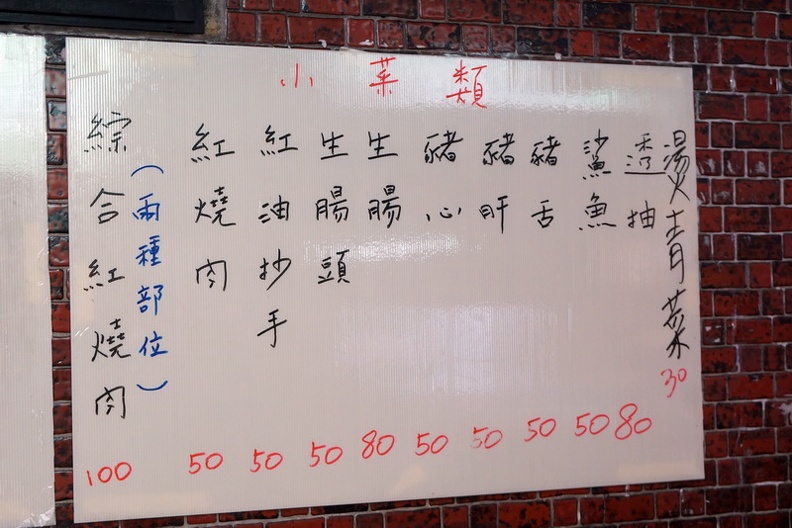 小菜類
燙青菜 30
透抽 80
鯊魚 50
豬舌 50
豬肝 50
豬心 50
生腸 80
生腸頭 50
紅油抄手 50
紅燒肉 50
綜合紅燒肉 100
(兩種部位)